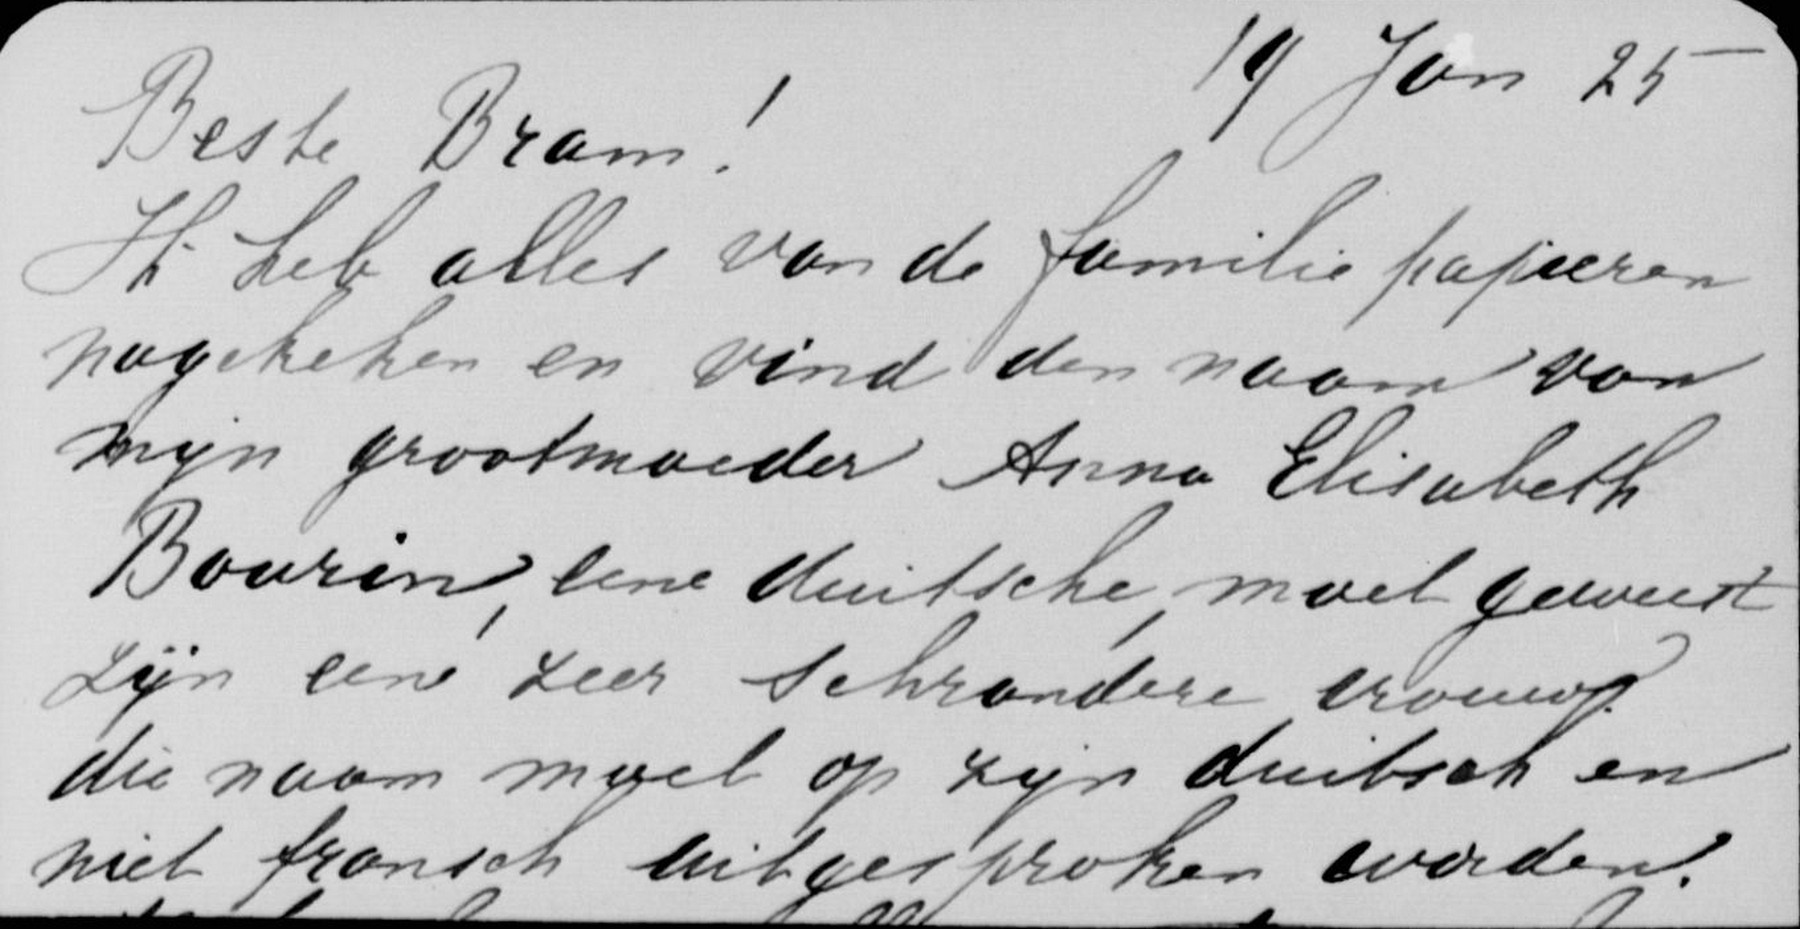 19 Jan 25
Beste Bram!
Ik heb alles van de familie papieren
nagekeken en vind den naam van
mijn grootmoeder Anna Elisabeth
Bourin, eene duitsche, moet geweest
zijn eene zeer schrandere vrouw.
die naam moet op zijn duitsch en
niet fransch uitgesproken worden.